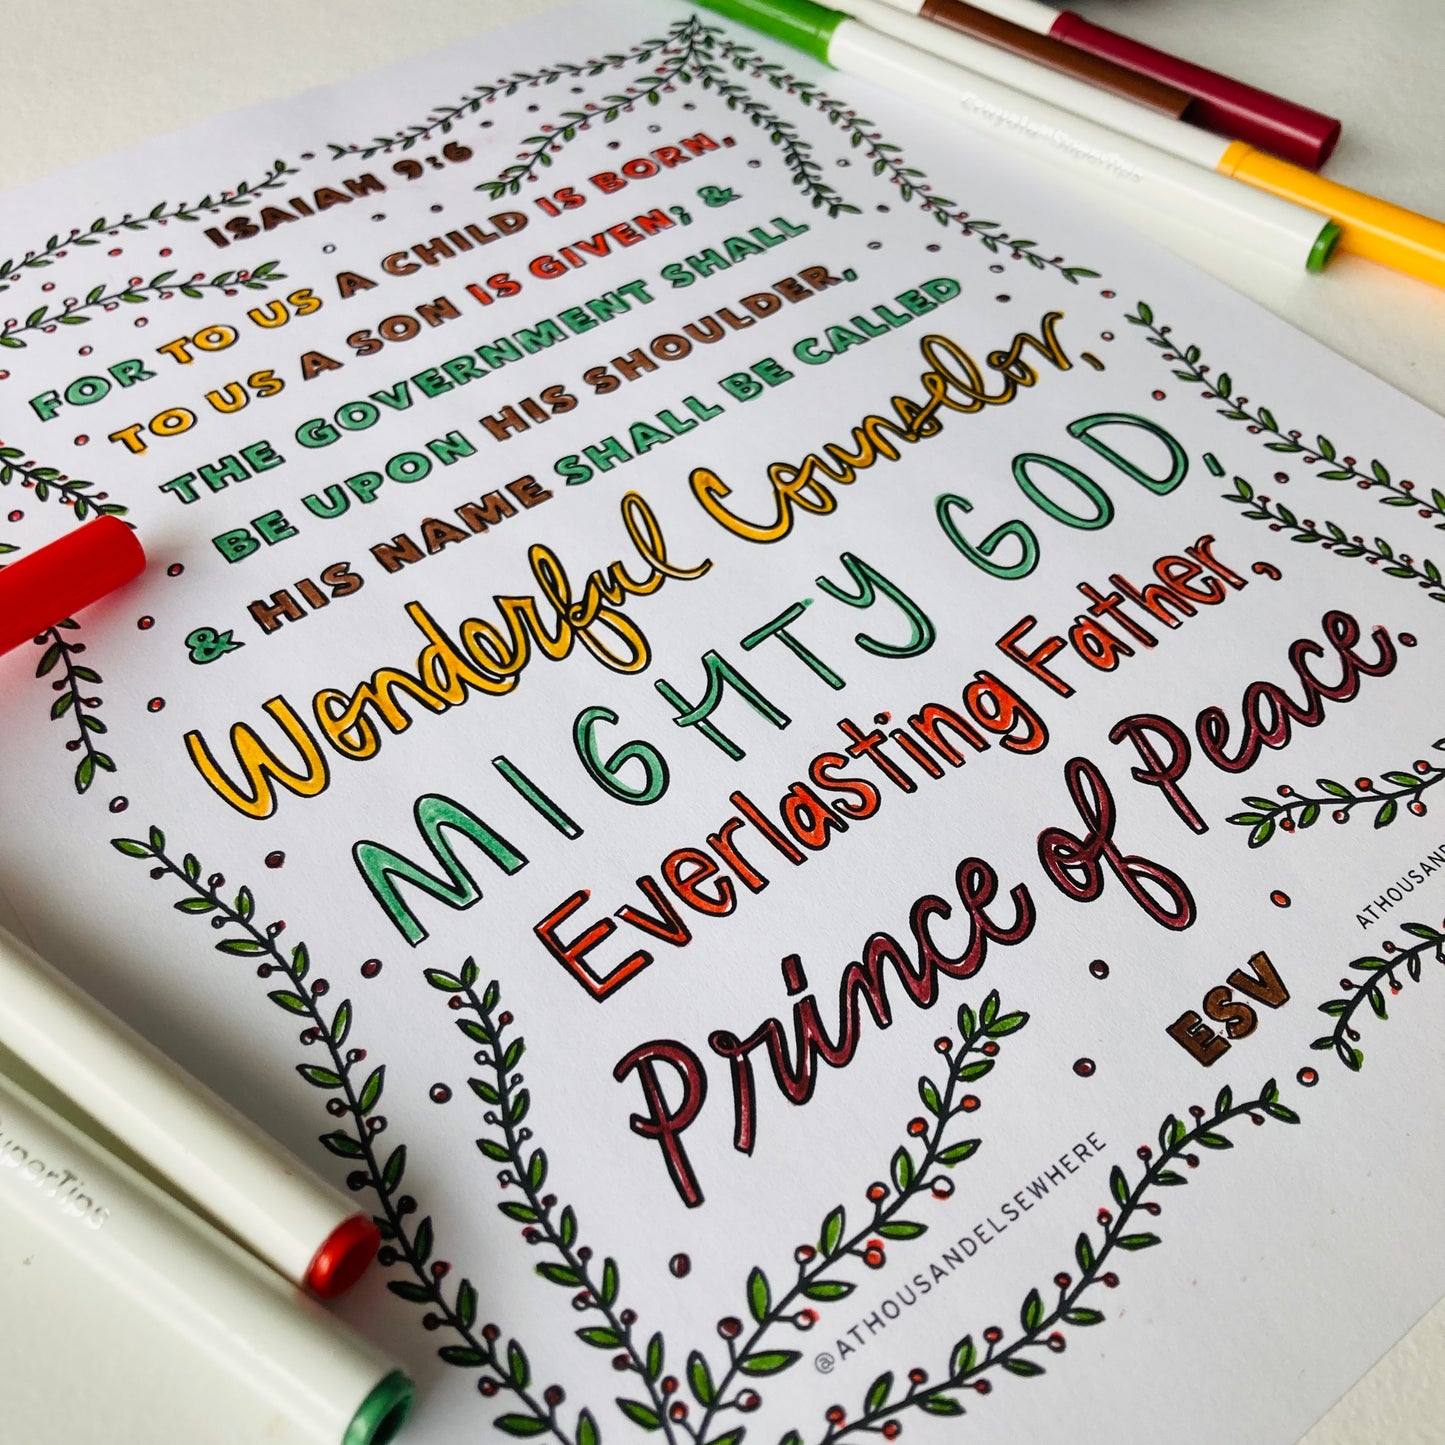 ISAIAH 9:6
FOR TO US A CHILD IS BORN,
TO US A SON IS GIVEN; &
THE GOVERNMENT SHALL
BE UPON HIS SHOULDER,
& HIS NAME SHALL BE CALLED
Wonderful Counselor,
MIGHTY GOD,
Everlasting Father,
Prince of Peace.
ESV
@ATHOUSANDELSEWHERE
Crayola SuperTips
SuperTips